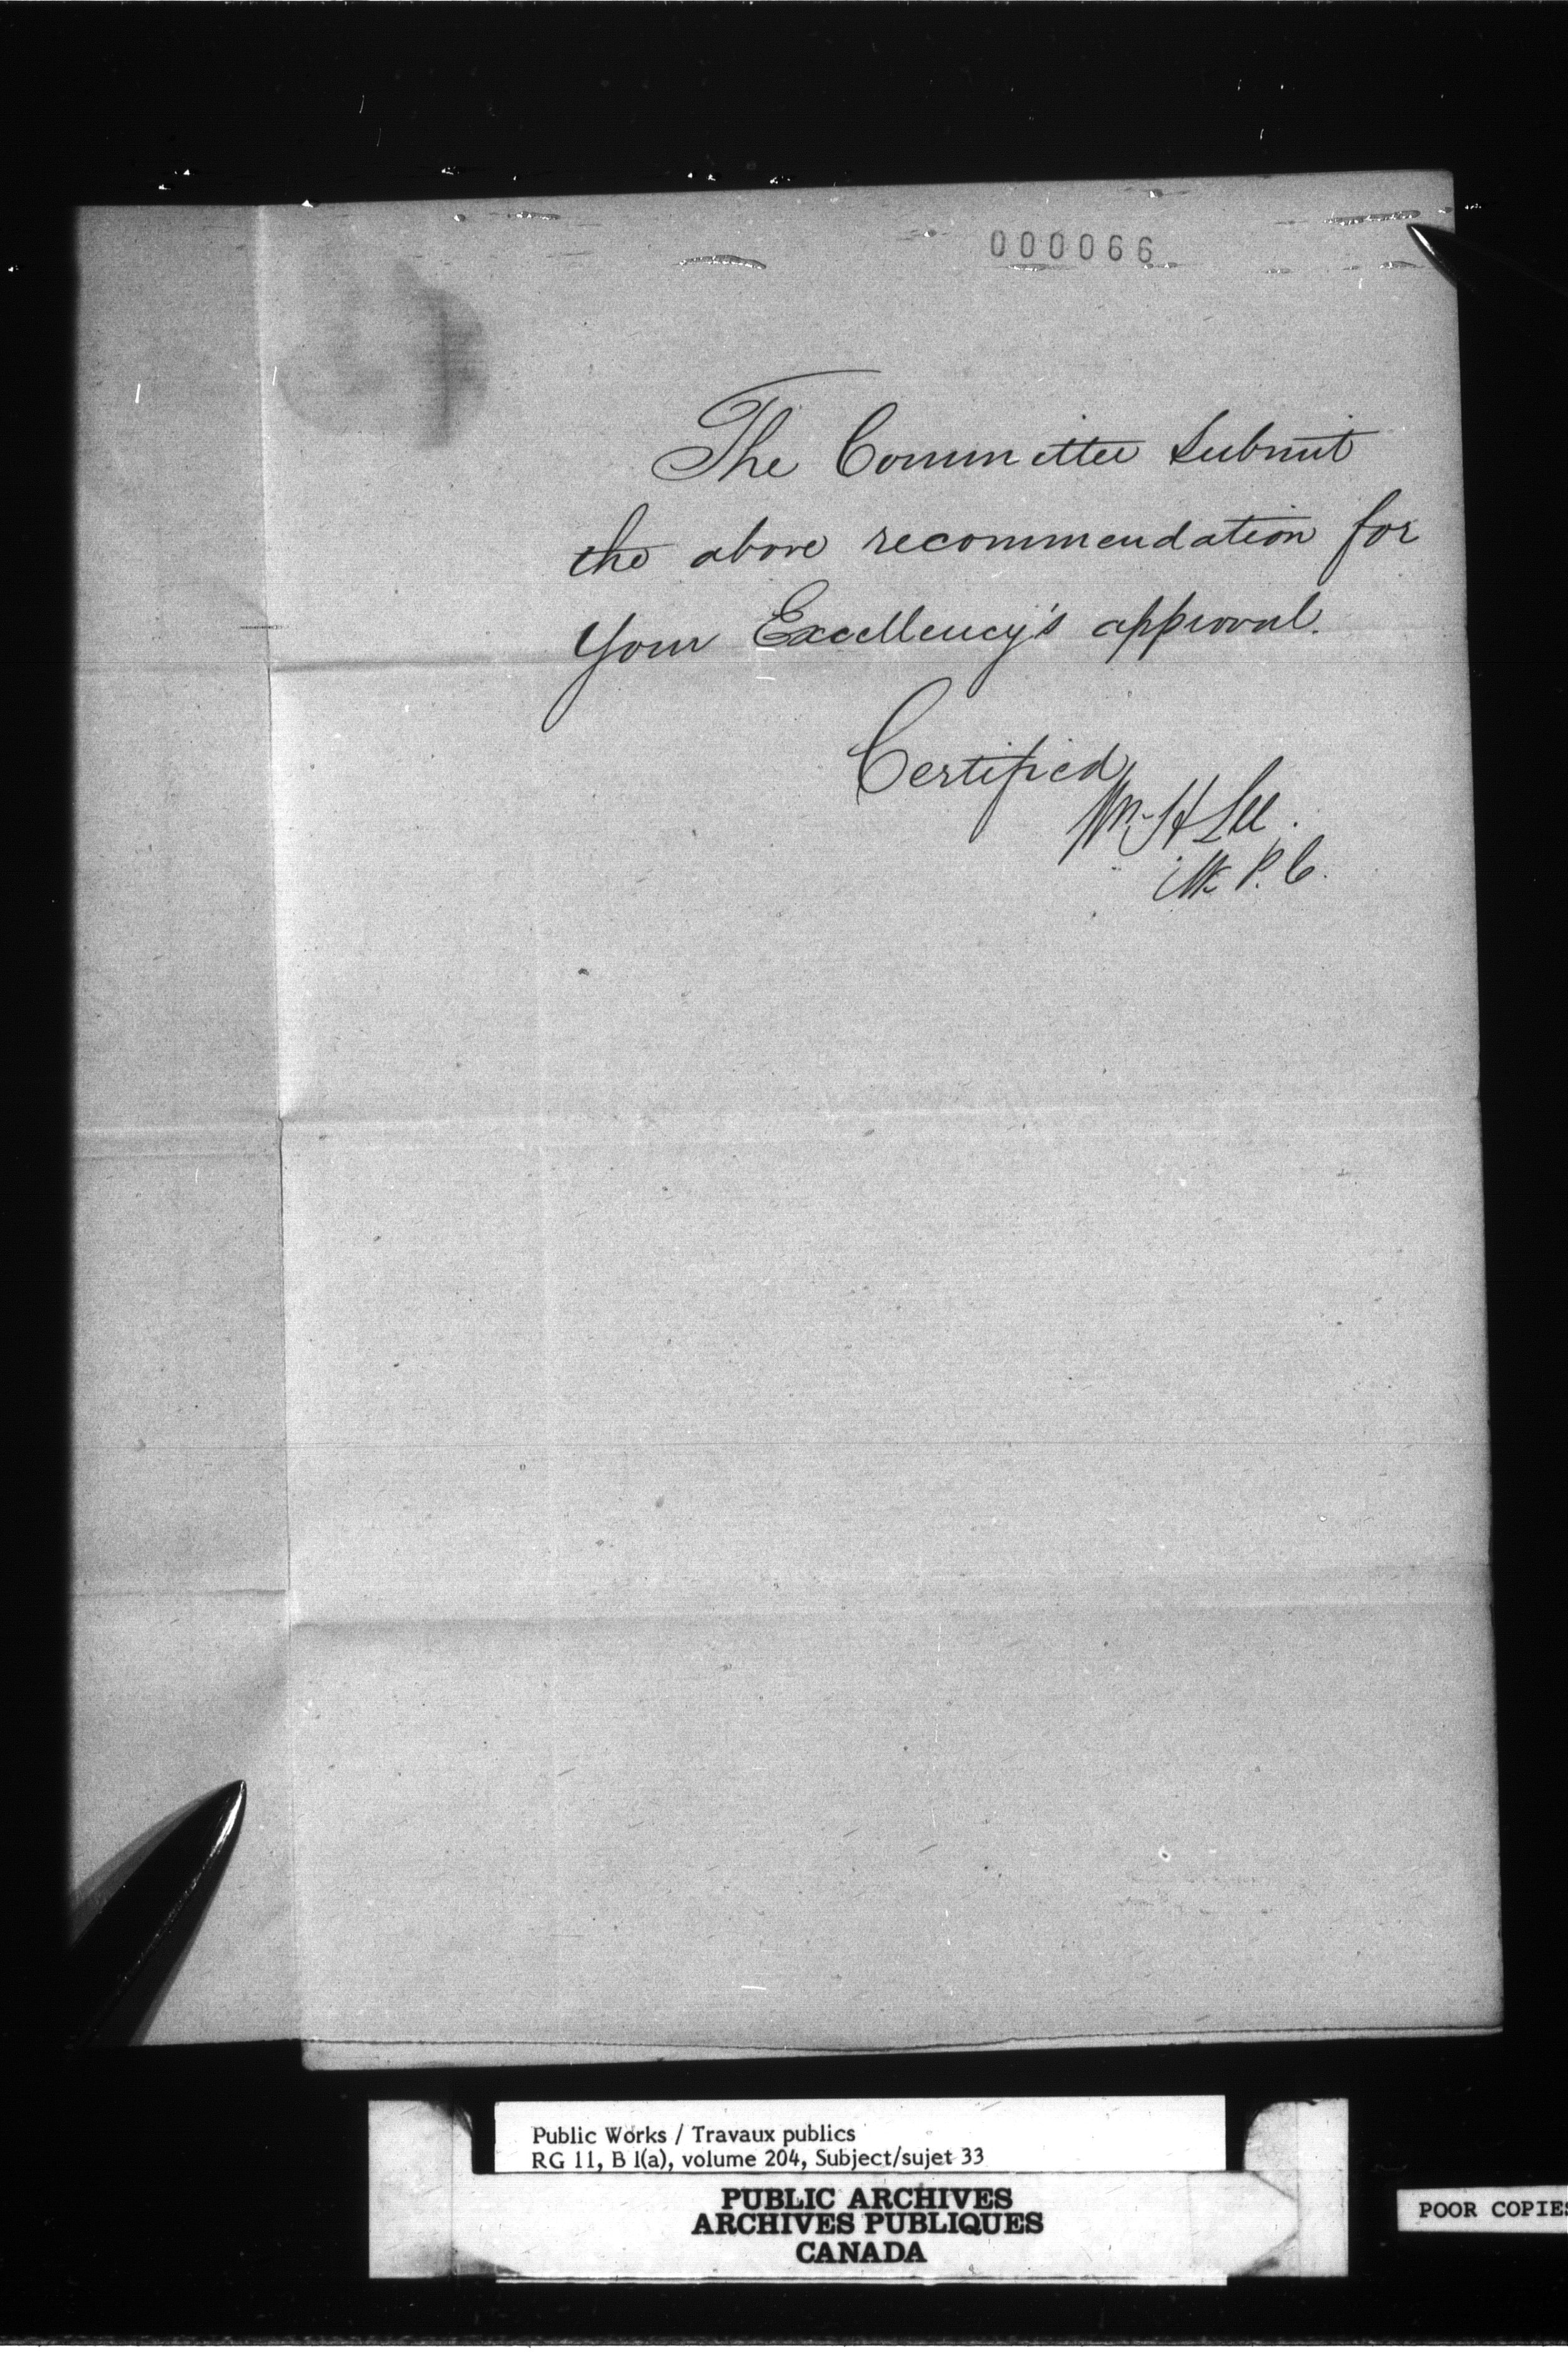 000066
The Committee Submit
the above recommendation for
Your Excellency's approval.
Certified
Wm H Lee.
Clk P. C.
Public Works / Travaux publics
RG 11, B 1(a), volume 204, Subject/sujet 33
PUBLIC ARCHIVES
ARCHIVES PUBLIQUES
CANADA
POOR COPIES